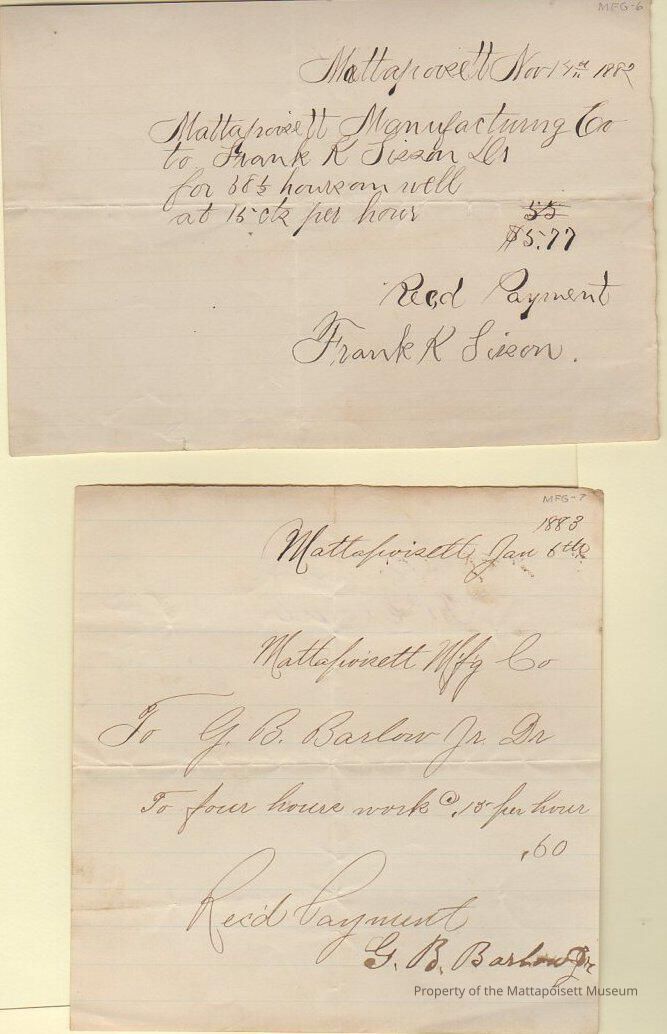 MFG-6
Mattapoisett Nov 14th 1882
Mattapoisett Manufacturing Co
to Frank K Sisson Dr
for 38½ hours on well
at 15 cts per hour 55
$5.77
Recd Payment
Frank K Sisson.
MFG-7
1883
Mattapoisett, Jan 6th
Mattapoisett Mfg Co
To G. B. Barlow Jr. Dr
To four hours work @ .15 per hour
.60
Rec'd Payment
G. B. Barlow Jr
Property of the Mattapoisett Museum